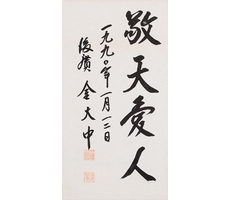 敬天愛人
一九九〇年一月一二日
後廣 金大中